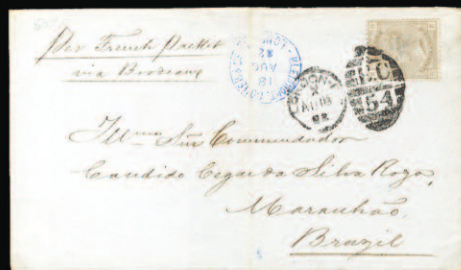 Per French Packet
via Bordeaux
LONDON
18
AU
82
54
Illmo Snr Commendador
Candido Cezar da Silva Roza,
Maranhão,
Brazil